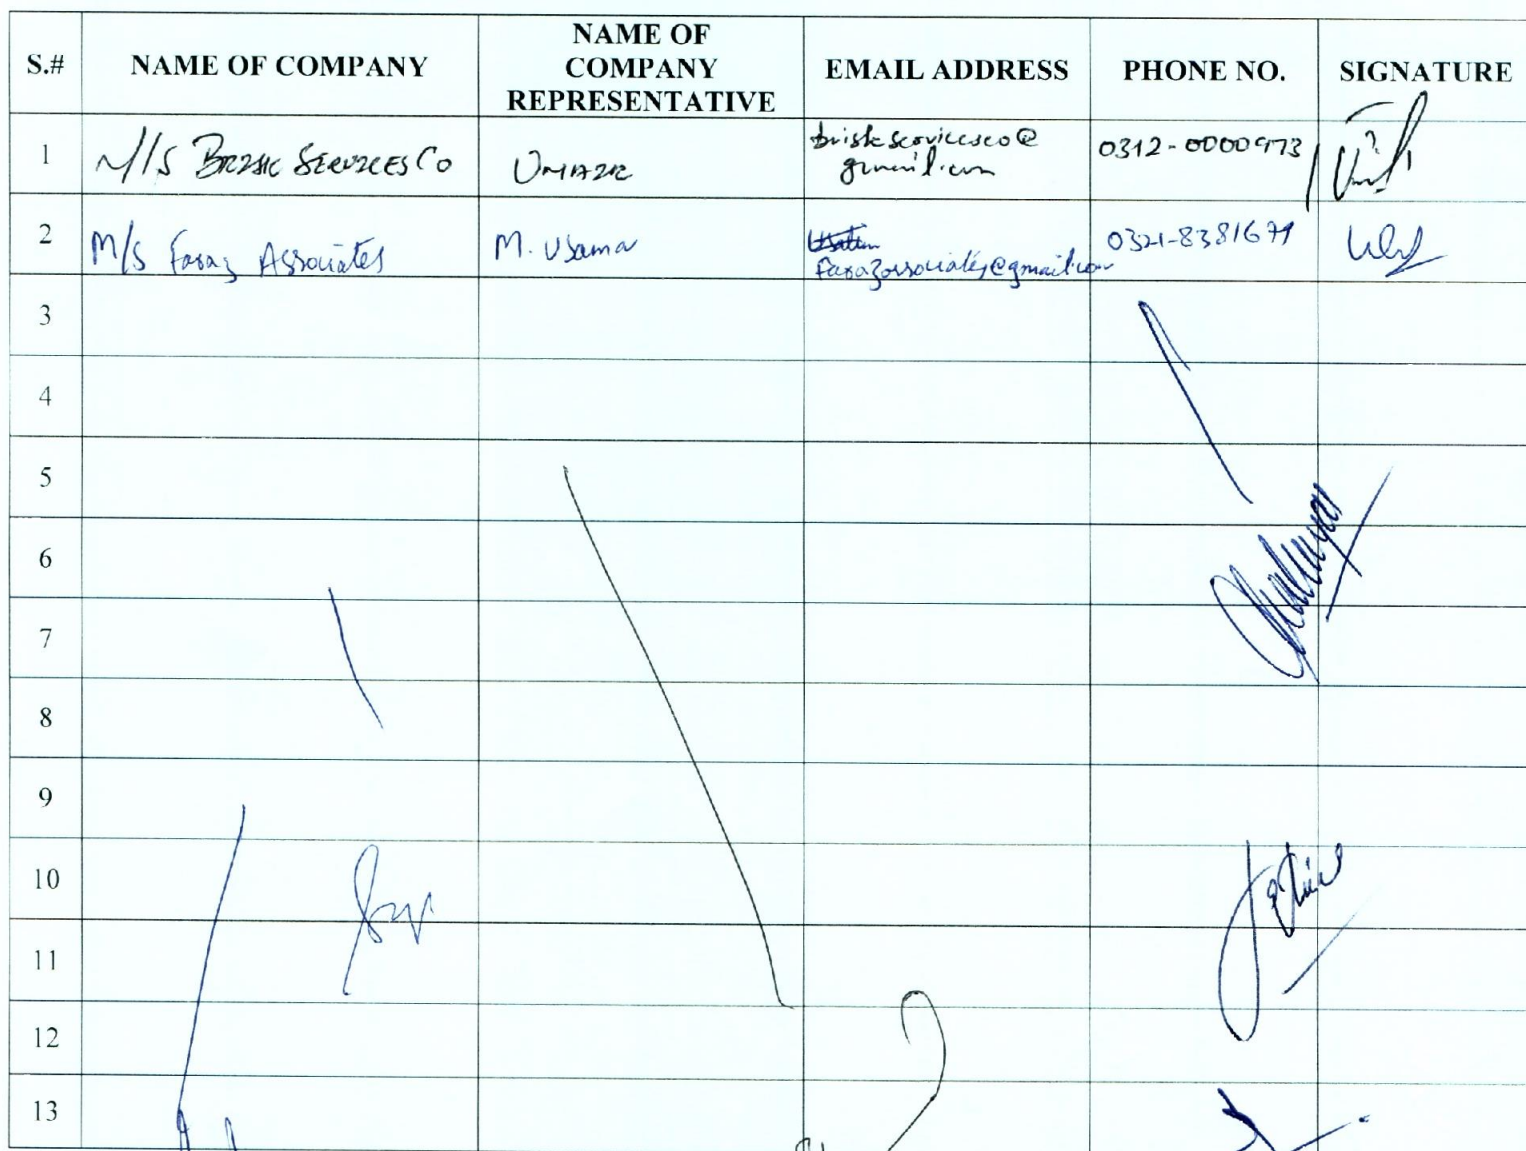 S.# NAME OF COMPANY NAME OF COMPANY REPRESENTATIVE EMAIL ADDRESS PHONE NO. SIGNATURE
1 M/S BRISK SERVICES CO UMAIR briskservicesco@
gmail.com
2 M/S Faraz Associates M. Usama 0321-8381679
farazassociates@gmail.com
3
4
5
6
7
8
9
10
11
12
13